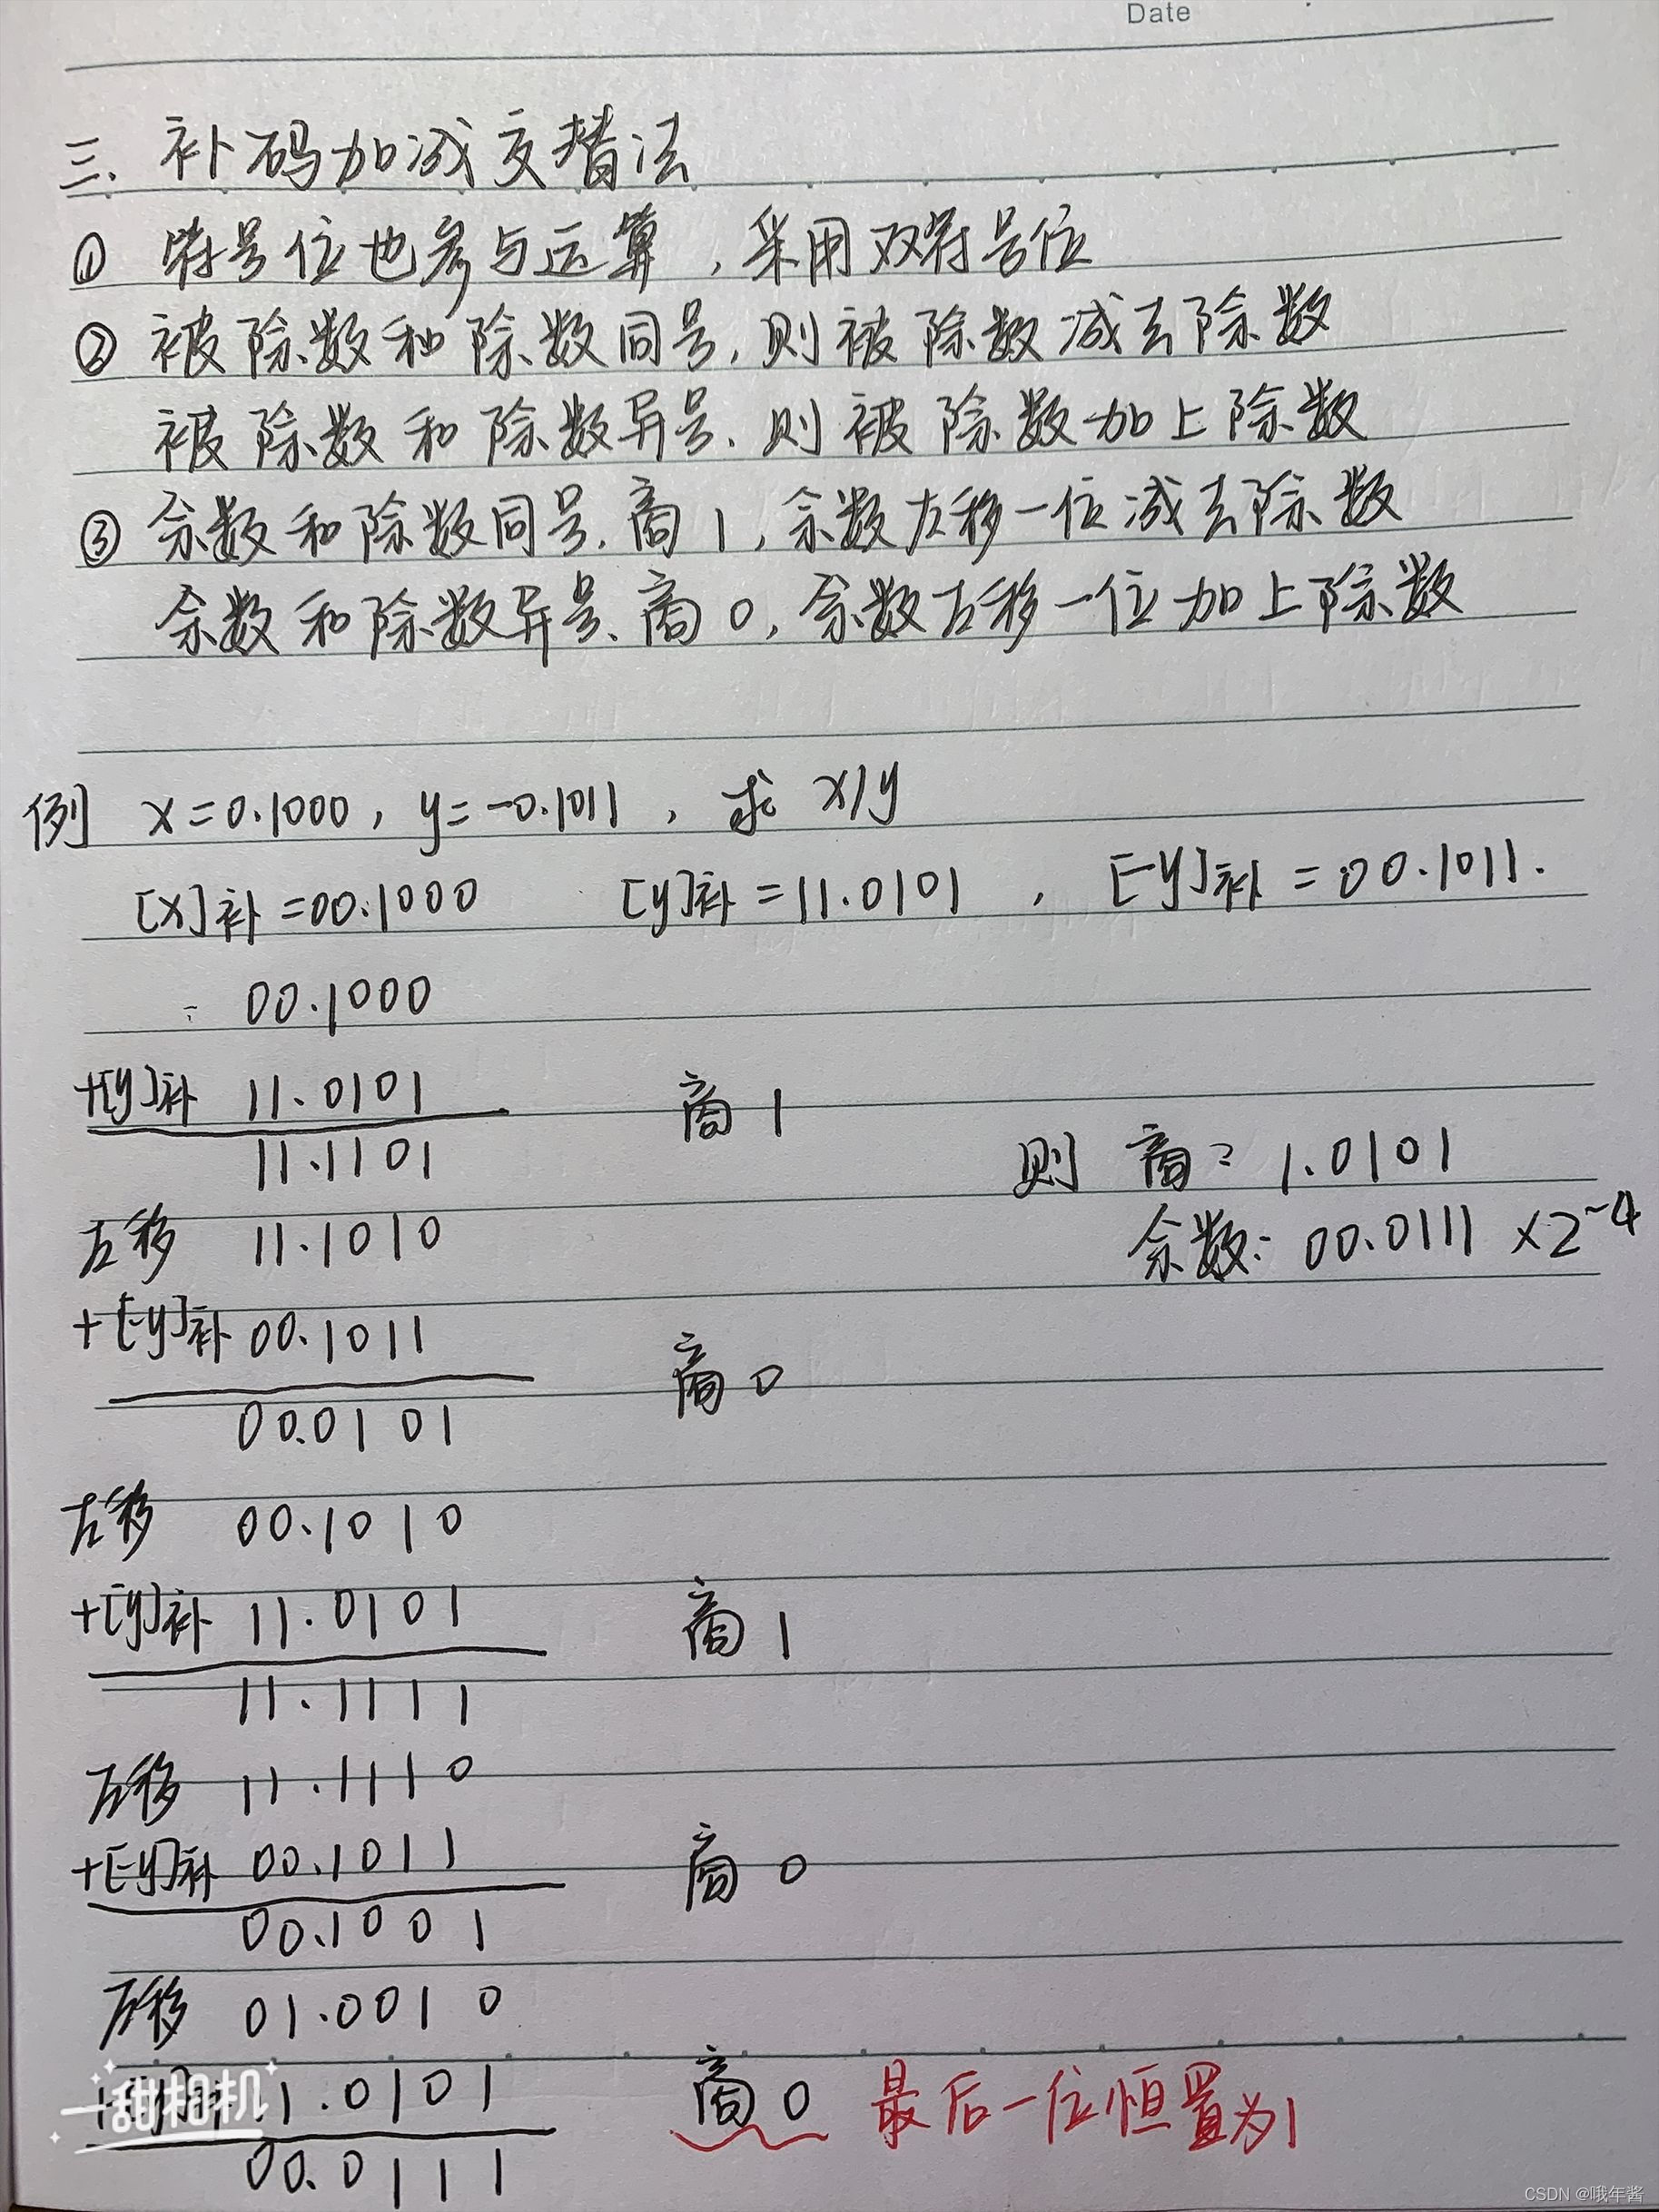 Date
三、补码加减交替法
① 符号位也参与运算，采用双符号位
② 被除数和除数同号，则被除数减去除数
被除数和除数异号、则被除数加上除数
③ 余数和除数同号、商1，余数左移一位减去除数
余数和除数异号、商0，余数左移一位加上除数
例 x=0.1000，y=-0.1011，求 x/y
[x]补=00.1000 [y]补=11.0101 ， [-y]补=00.1011.
00.1000
+[y]补 11.0101 商 1
11.1101
则 商: 1.0101
左移 11.1010
余数: 00.0111 ×2^-4
+[-y]补 00.1011 商 0
00.0101
左移 00.1010
+[y]补 11.0101 商 1
11.1111
左移 11.1110
+[-y]补 00.1011 商 0
00.1001
左移 01.0010
1.0101 商 0 最后一位恒置为1
一甜相机
00.0111
CSDN @哦年酱